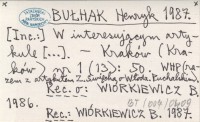 BUŁHAK Henryk 1987.
[Inc.:] W interesującym arty-
kule [...]. - Kraków (Kra-
ków) nr 1 (13): 50. WHP (ra-
zem z artykułem Z. o Włodz. Puchalskim).
Rec. o: WIÓRKIEWICZ B.
1986.
Rec.: WIÓRKIEWICZ B. 1987.